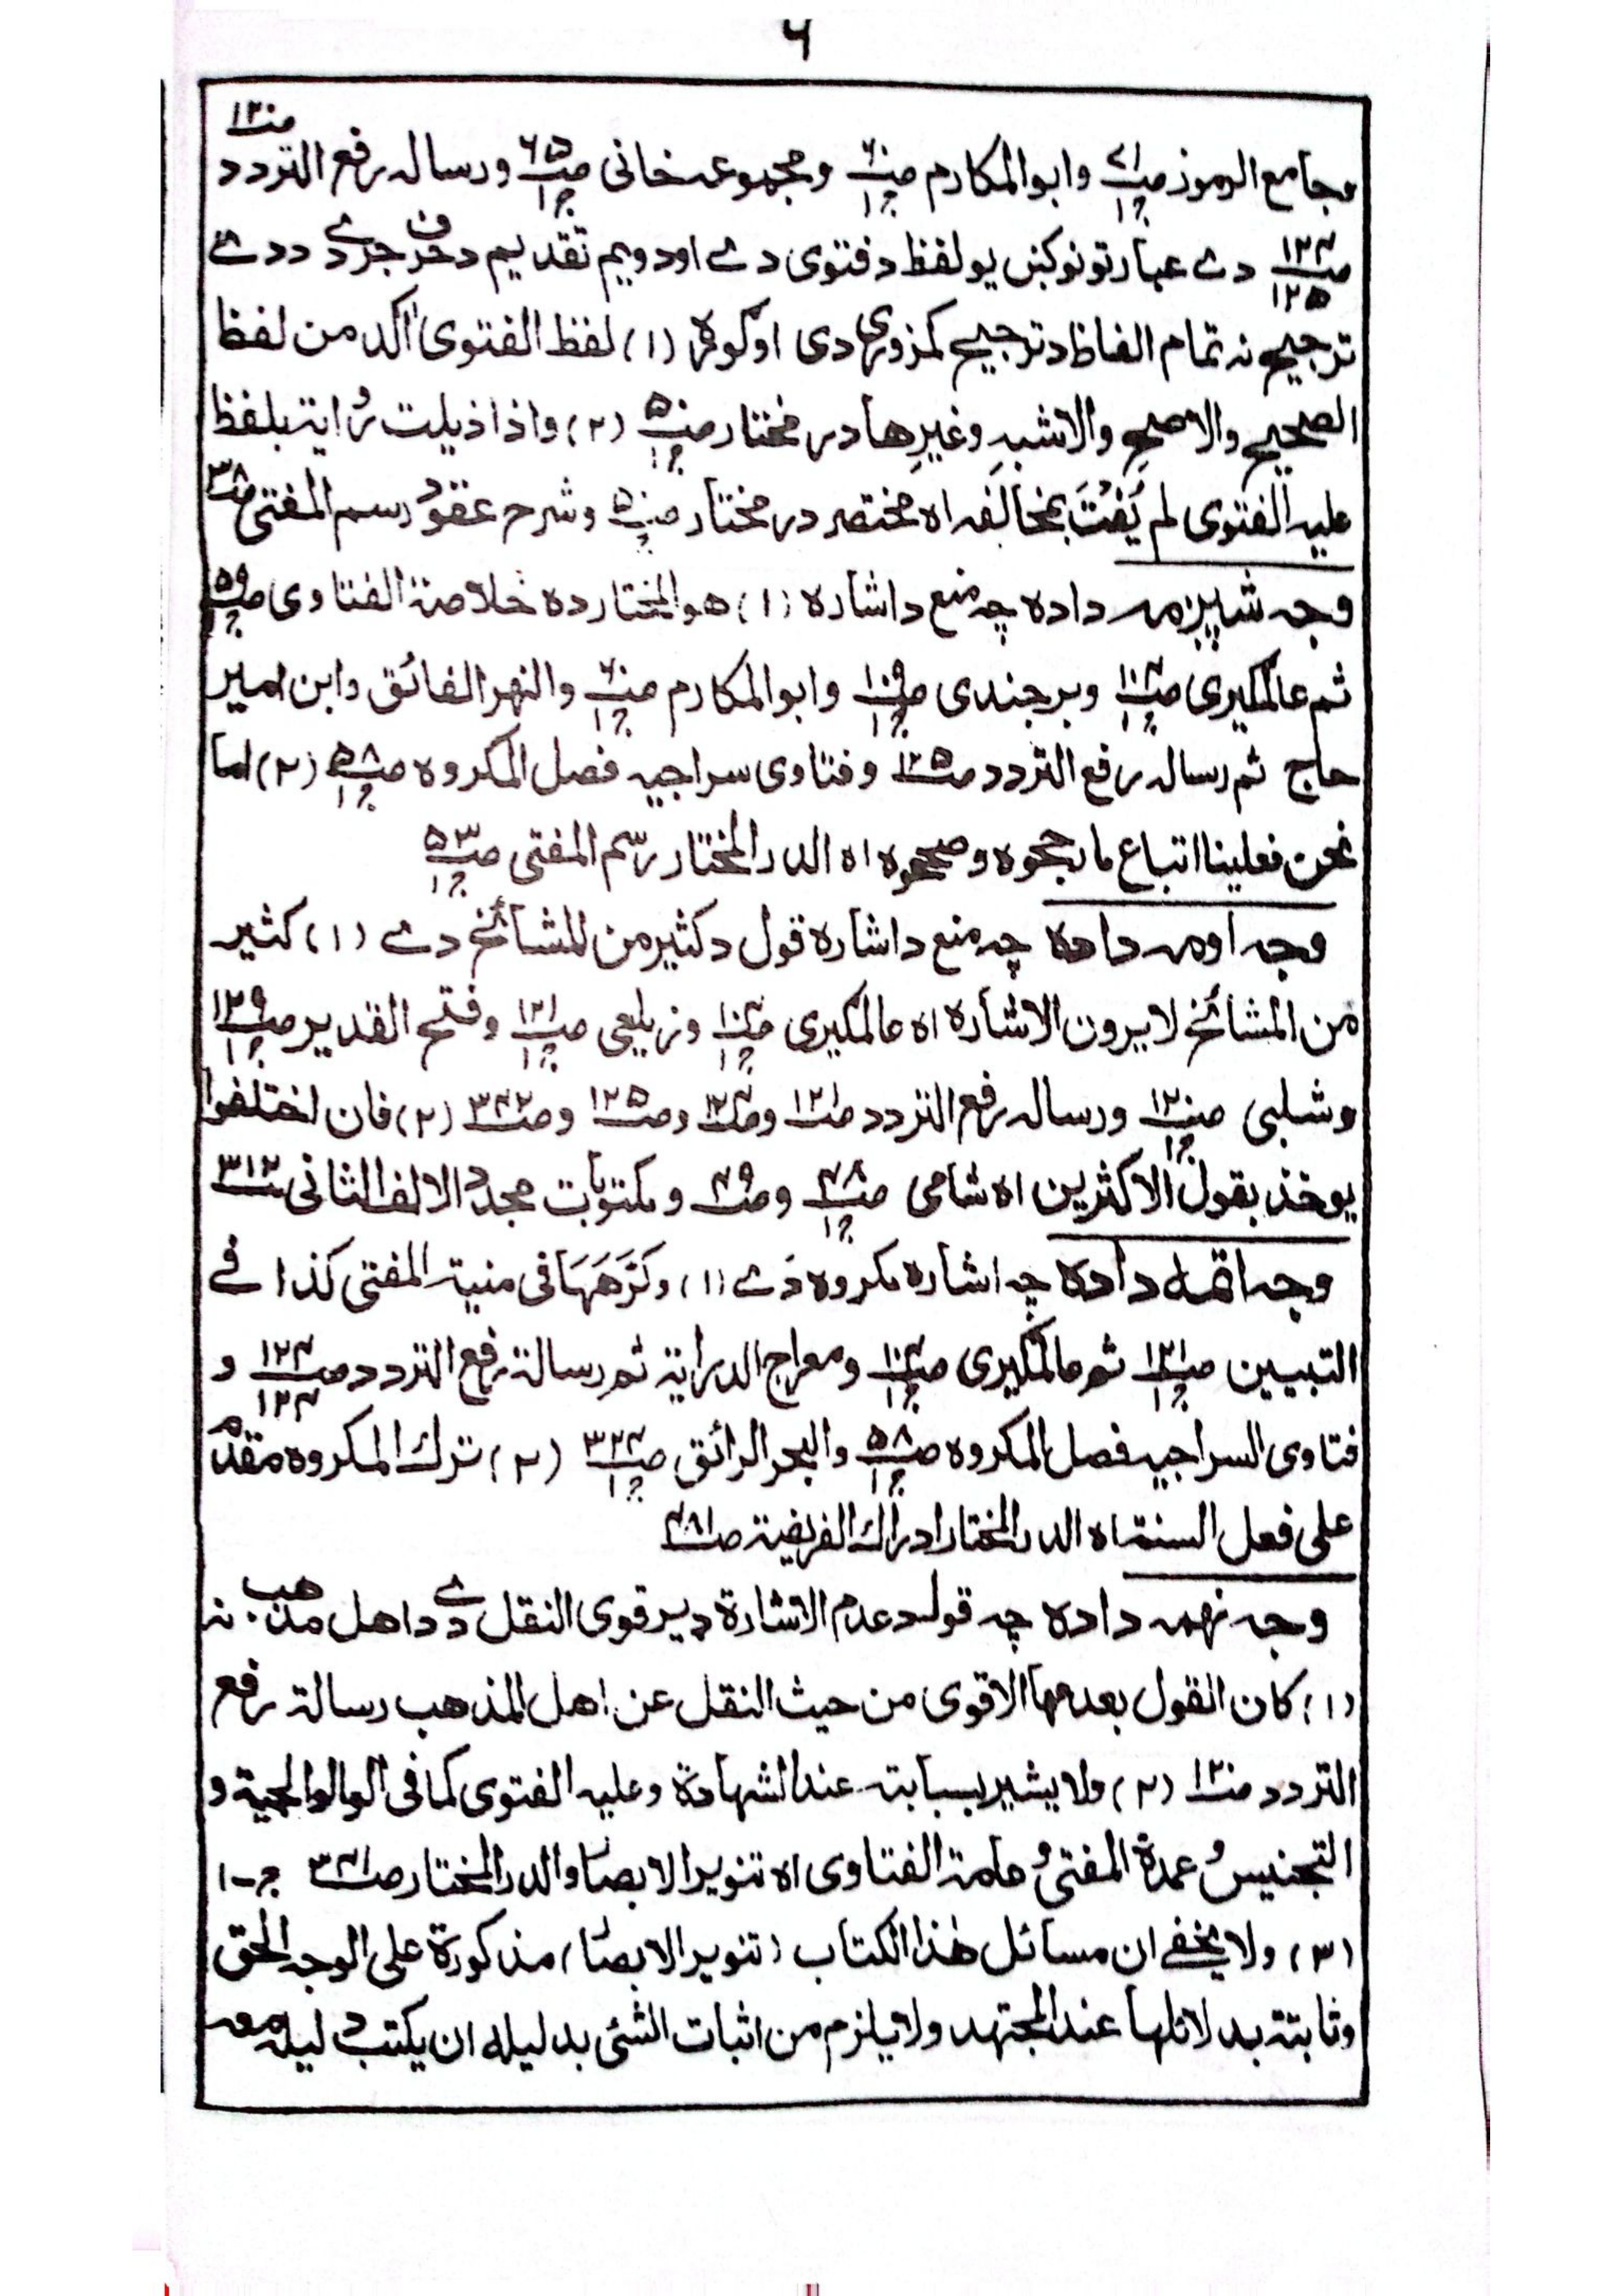 ۶
وجامع الرموز صـ۷۱ ج۱ وابوالمکارم صـ۶۰ ج۱ ومجموعہ خانی صـ۶۵ ج۱ ورسالہ رفع التردد صـ۱۲۰
صـ۱۲۴ ۱۲۵ دے عبارتونو کښ یو لفظ د فتوی دے او دویم تقدیم د حرف جر دے د دے
ترجیح نہ تمام الفاظ د ترجیح کمزوری دی اوګورہ (۱) لفظ الفتوی اٰکد من لفظ
الصحیح والاصح والاشبہ وغیرِھا در مختار صـ۵۰ ج۱ (۲) واذا ذیلت رُوایتہ بلفظ
علیہ الفتوی لم یَُفتَ بمخالفہ اہ مختصر در مختار صـ۵۰ ج۱ وشرح عقود رسم المفتی صـ۳۸
وجہ شپږمہ دادہ چہ منع د اشارہ (۱) ھوالمختار دہ خلاصۃ الفتاوی صـ۵۹ ج۱
ثم عالمکیری صـ۱۰۴ ج۱ وبرجندی صـ۱۰۹ ج۱ وابوالمکارم صـ۶۰ ج۱ والنھر الفائق وابن امیر
حاج ثم رسالہ رفع التردد صـ۱۲۵ وفتاوی سراجیہ فصل المکروہ صـ۵۸ ج۱ (۲) اما
نحن فعلینا اتباع مارجحوہ وصححوہ اہ الدرالمختار رسم المفتی صـ۵۳ ج۱
وجہ اومہ دادہ چہ منع د اشارہ قول د کثیر من المشائخ دے (۱) کثیر
من المشائخ لایرون الاشارہ اہ عالمکیری صـ۱۰۴ ج۱ وزیلعی صـ۱۲۱ ج۱ وفتح القدیر صـ۱۲۹ ج۱
وشلبی صـ۱۲۰ ج۱ ورسالہ رفع التردد صـ۱۲۱ وصـ۱۲۴ وصـ۱۲۵ وصـ۳۴۲ (۲) فان اختلفوا
یوخذ بقول الاکثرین اہ شامی صـ۴۸ ج۱ وصـ۴۹ ومکتوبات مجدد الالف الثانی صـ۳۱۲
وجہ اتمہ دادہ چہ اشارہ مکروہ دَے (۱) وکَرَّھَھَا فی منیۃ المفتی کذا فے
التبیین صـ۱۲۱ ج۱ ثم عالمکیری صـ۱۰۴ ج۱ ومعراج الدرایۃ ثم رسالۃ رفع التردد صـ۱۲۴ ۱۳۴ و
فتاوی السراجیہ فصل المکروہ صـ۵۸ ج۱ والبحر الرائق صـ۳۲۴ ج۱ (۲) ترک المکروہ مقدم
علی فعل السنۃ اہ الدرالمختار ادراک الفریضۃ صـ۴۸۱
وجہ نھمہ دادہ چہ قول د عدم الاشارۃ ډیر قوی النقل دے د اھل مذھب نہ
(۱) کان القول بعدمھا الاقوی من حیث النقل عن اھل المذھب رسالۃ رفع
التردد صـ۱۲۰ (۲) ولا یشیر بسبابتہ عند الشھادۃ وعلیہ الفتوی کما فی الوالوالجیۃ و
التجنیس وعمدۃ المفتی وعامۃ الفتاوی اہ تنویر الابصار والدرالمختار صـ۳۴۱ ج-۱
(۳) ولا یخفے ان مسائل ھٰذا الکتاب (تنویر الابصار) مذکورۃ علی الوجہ الحق
وثابتۃ بدلائلھا عند المجتھد ولا یلزم من اثبات الشئی بدلیلہ ان یکتب دلیلہ معہ